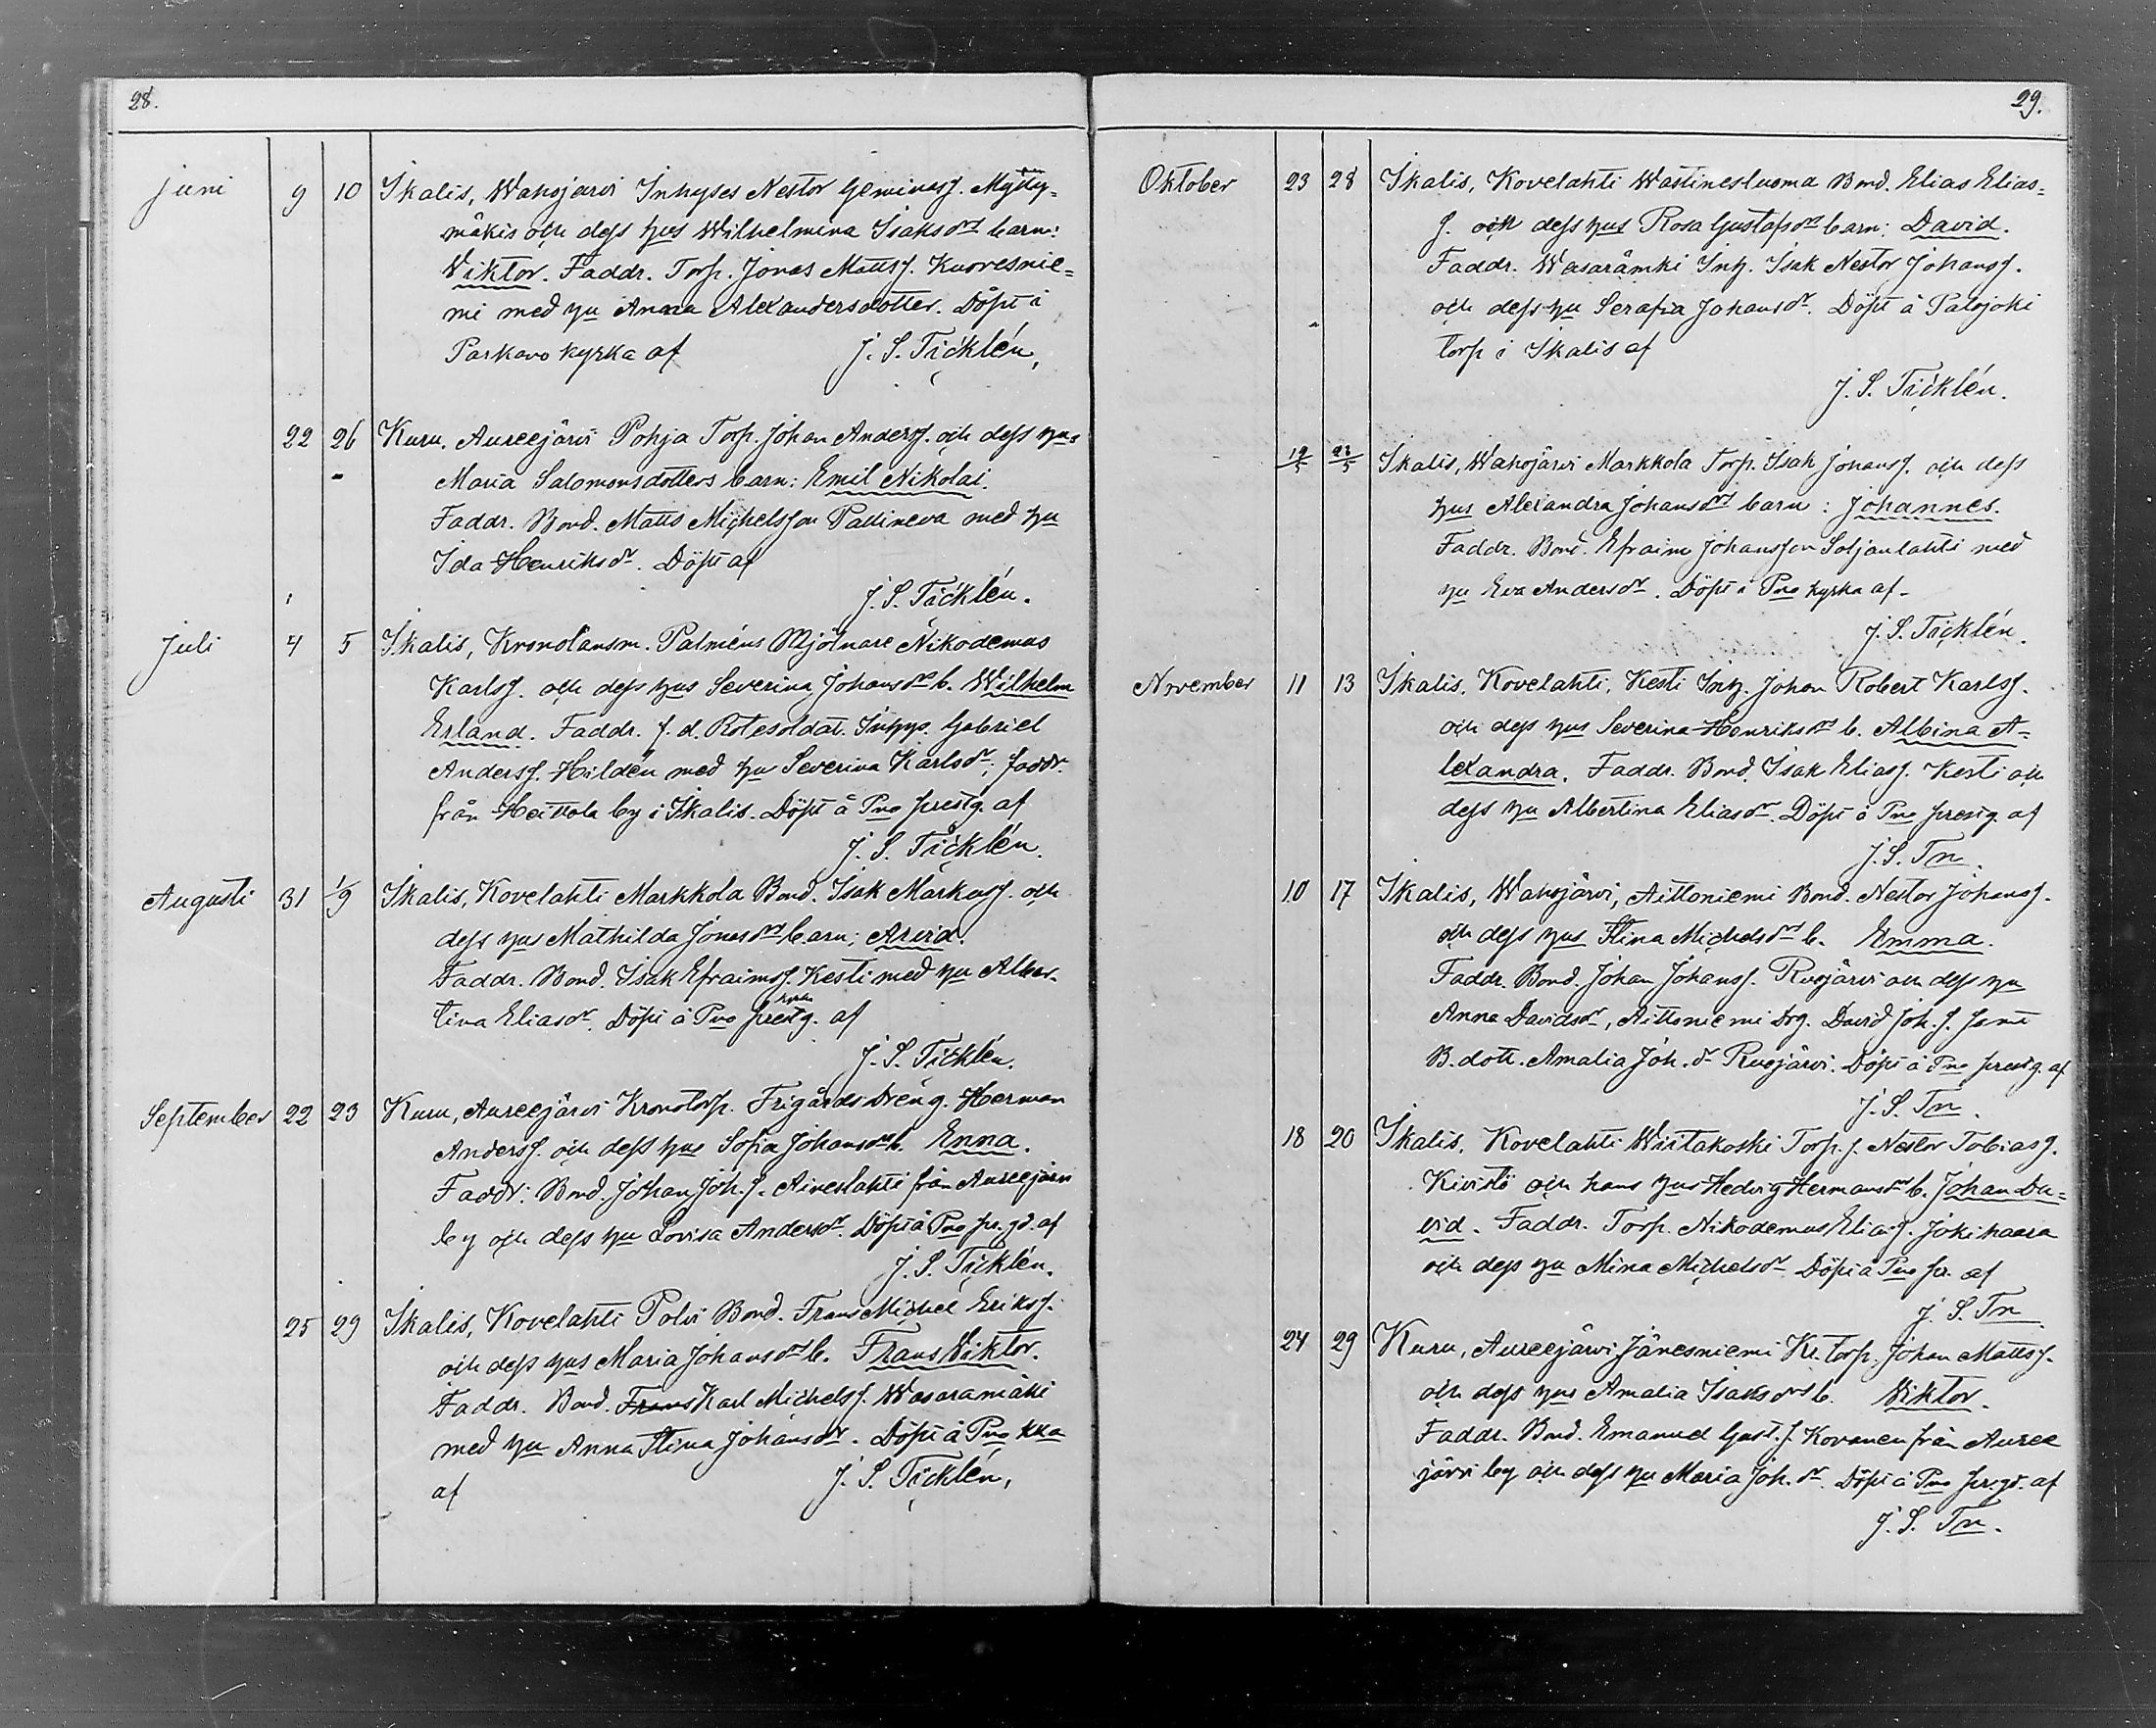 28.
Juni 9 10 Ikalis, Wahojärvi Inhyses Nestor Geminasf. Myllymäkis och dess hus Wilhelmina Isaksdrs barn:
Wiktor. Faddr. Torp. Jonas Mattsf. Kuoresniemi med hu Anna Alexandersdotter. Döpt i
Parkano kyrka af J. S. Ticklén.
22 26 Kuru, Aureejärvi Pohja Torp. Johan Andersf. och dess hus
Maria Salomonsdotters barn: Emil Nikolai.
Faddr. Bond. Matts Michelsson Pallineva med hu
Ida Henriksdr. Döpt af
J. S. Ticklén.
Juli 4 5 Ikalis, Kronolänsm. Palméns Mjölnare Nikodemus
Karlsf. och dess hus Severina Johansdrs b. Wilhelm
Erland. Faddr. f. d. Rotesoldat. Gabriel
Andersf. Hildén med hu Severina Karlsdr; faddr.
från Heittola by i Ikalis. Döpt å Pno prestg. af
J. S. Ticklén.
Augusti 31 1/9 Ikalis, Kovelahti Markkola Bond. Isak Markusf. och
dess hus Mathilda Jonasdrs barn; Arvid.
Faddr. Bond. Isak Efraimsf. Kesti med hu Alber-
tina Eliasdr. Döpt å Pno prestg. af
J. S. Ticklén.
September 22 23 Kuru, Aureejärvi Kronotorp. Frigårds Dräng. Herman
Andersf. och dess hus Sofia Johansdrs b. Enna.
Faddr: Bond. Johan Joh. f. Aiveslahti från Aureejärvi
by och dess hu Lovisa Andersdr. Döpt å Pno pr.gd. af
J. S. Ticklén.
25 29 Ikalis, Kovelahti Polvi Bond. Frans Michel Eriksf.
och dess hus Maria Johansdrs b. Frans Wiktor.
Faddr. Bond. Frans Karl Michelsf. Wasaramäki
med hu Anna Stina Johansdr. Döpt å Pno kka
af J. S. Ticklén.
29.
Oktober 23 28 Ikalis, Kovelahti Wastinesluoma Bond. Elias Elias=
f. och dess hus Rosa Gustafsdrs barn: David.
Faddr. Wasarämki Inh. Isak Nestor Johansf.
och dess hu Serafia Johansdr. Döpt å Palojoki
torp i Ikalis af
J. S. Ticklén.
19/5 23/5 Ikalis, Wahojärvi Markkola Torp. Isak Johansf. och dess
hus Alexandra Johansdrs barn: Johannes.
Faddr. Bond. Efraim Johansson Soljanlahti med
hu Eva Andersdr. Döpt i Pno kyrka af
J. S. Ticklén.
November 11 13 Ikalis, Kovelahti, Kesti Inh. Johan Robert Karlsf.
och dess hus Severina Henriksdrs b. Albina A=
lexandra. Faddr. Bond. Isak Eliasf. Kesti och
dess hu Albertina Eliasdr. Döpt å Pno prestg. af
J. S. Tn.
10 17 Ikalis, Wahojärvi, Aittoniemi Bond. Nestor Johansf.
och dess hus Stina Michelsdrs b. Emma.
Faddr. Bond. Johan Johansf. Ruojärvi och dess hu
Anna Davidsdr, Aittoniemi Drg. David Joh. f. samt
B. dott. Amalia Joh. dr Ruojärvi. Döpt å Pno prestg. af
J. S. Tn.
18 20 Ikalis, Kovelahti Wiitakoski Torp. f. Nestor Tobiasf.
Kivistö och hans hus Hedvig Hermansdrs b. Johan Da=
vid. Faddr. Torp. Nikodemus Eliasf. Jokihaara
och dess hu Mina Michelsdr. Döpt å Pno pr. af
J. S. Tn.
24 29 Kuru, Aureejärvi Jänesniemi Kr. torp. Johan Mattsf.
och dess hus Amalia Isaksdrs b. Wiktor.
Faddr. Bond. Emanuel Gust. f. Kovanen från Auree
järvi by och dess hu Maria Joh. dr. Döpt å Pno pr.gd. af
J. S. Tn.